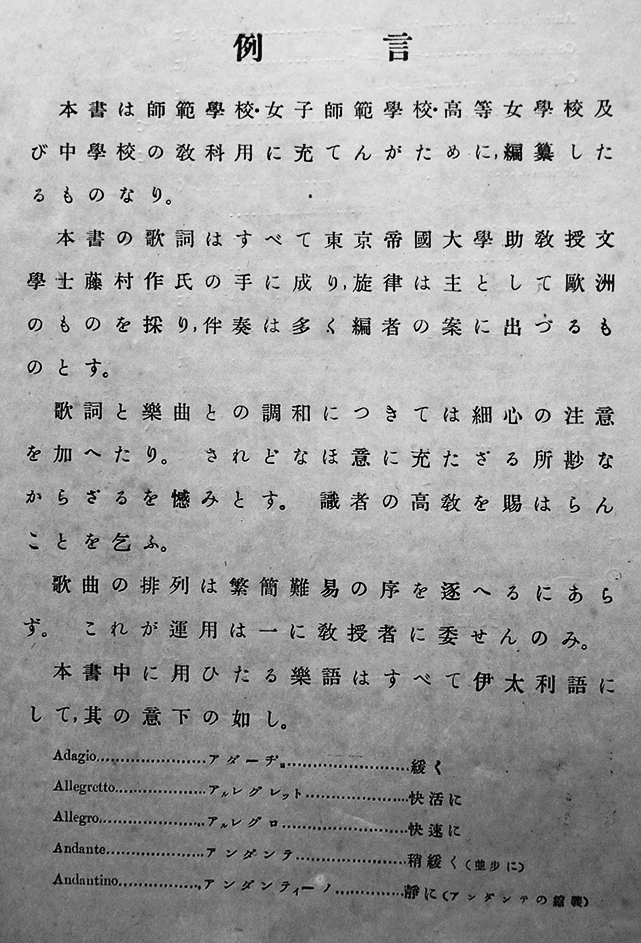 例言
本書は師範學校・女子師範學校・高等女學校及
び中學校の敎科用に充てんがために,編纂した
るものなり。
本書の歌詞はすべて東京帝國大學助敎授文
學士藤村作氏の手に成り,旋律は主として歐洲
のものを採り,伴奏は多く編者の案に出づるも
のとす。
歌詞と樂曲との調和につきては細心の注意
を加へたり。されどなほ意に充たざる所尠な
からざるを憾みとす。識者の高敎を賜はらん
ことを乞ふ。
歌曲の排列は繁簡難易の序を逐へるにあら
ず。これが運用は一に敎授者に委せんのみ。
本書中に用ひたる樂語はすべて伊太利語に
して,其の意下の如し。
Adagio……………………アダーヂ……………………緩く
Allegretto……………………アルレグレット……………………快活に
Allegro……………………アルレグロ……………………快速に
Andante……………………アンダンテ……………………稍緩く(並步に)
Andantino……………………アンダンティーノ……………………靜に(アンダンテの縮義)